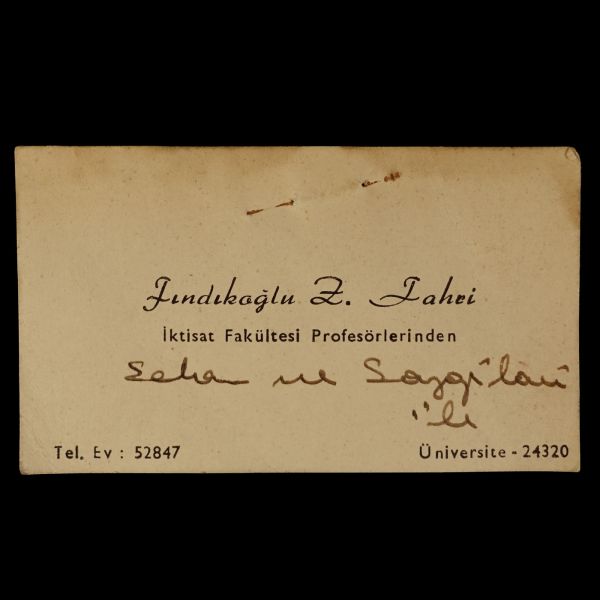 Fındıkoğlu Z. Fahri
İktisat Fakültesi Profesörlerinden
Selam ve Saygıları
ile
Tel. Ev : 52847
Üniversite - 24320